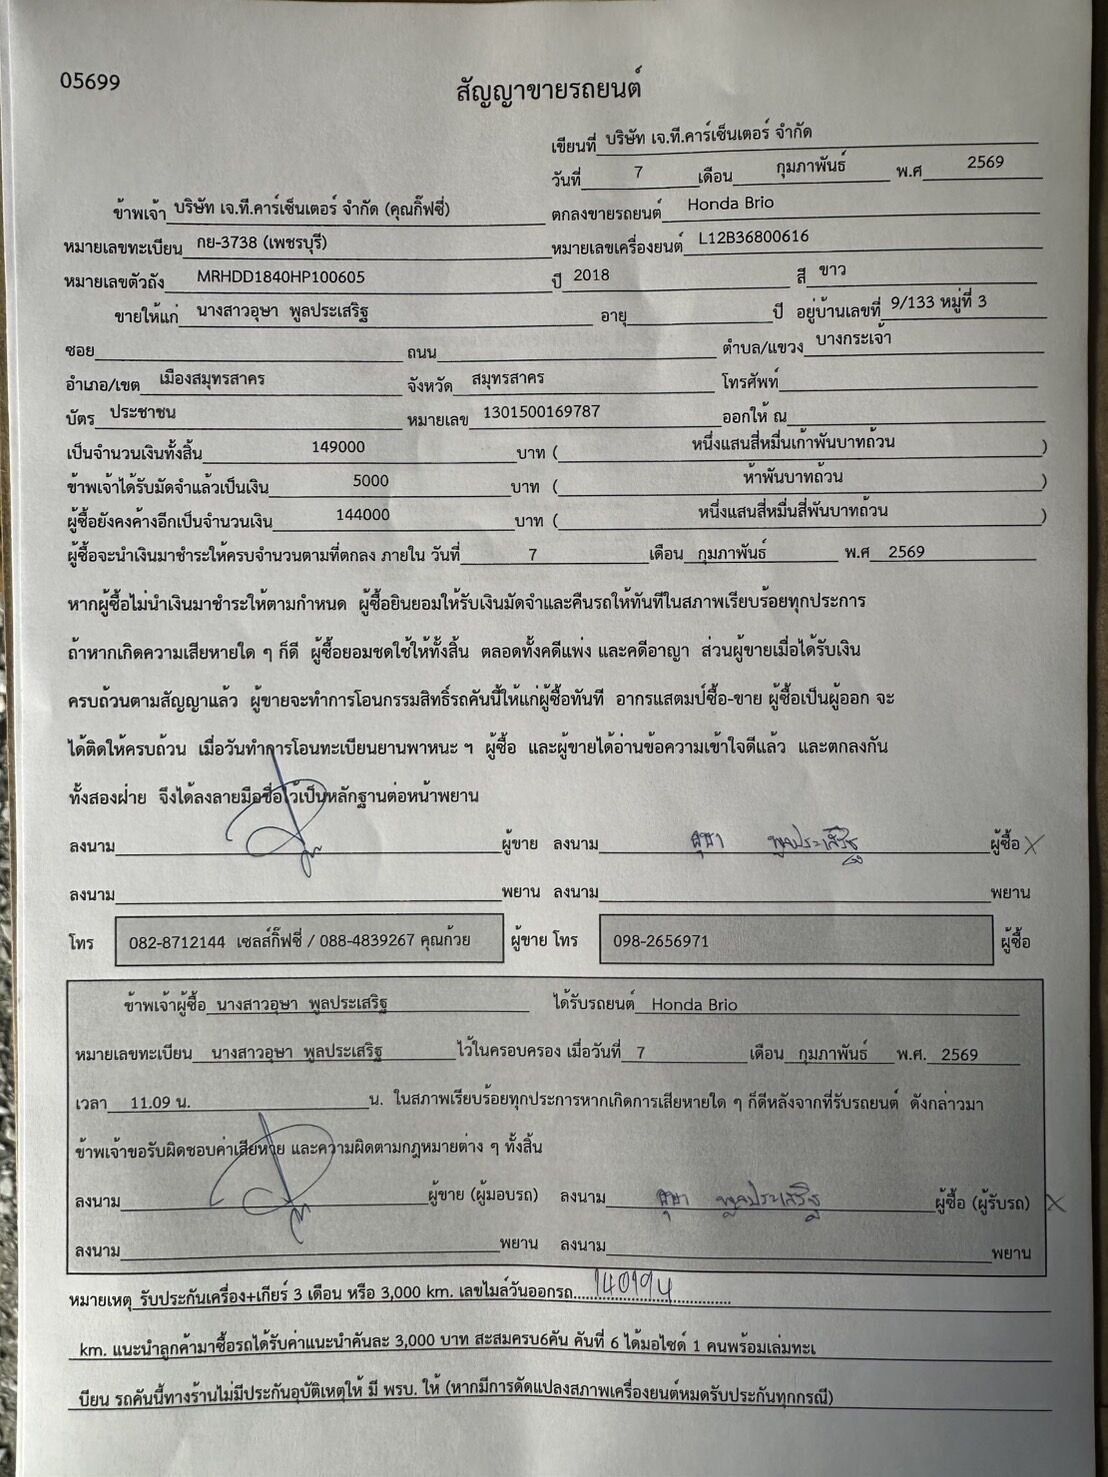 05699
สัญญาขายรถยนต์
เขียนที่ บริษัท เจ.ที.คาร์เซ็นเตอร์ จำกัด
วันที่ 7 เดือน กุมภาพันธ์ พ.ศ 2569
ข้าพเจ้า บริษัท เจ.ที.คาร์เซ็นเตอร์ จำกัด (คุณกิ๊ฟซี่) ตกลงขายรถยนต์ Honda Brio
หมายเลขทะเบียน กย-3738 (เพชรบุรี) หมายเลขเครื่องยนต์ L12B36800616
หมายเลขตัวถัง MRHDD1840HP100605 ปี 2018 สี ขาว
ขายให้แก่ นางสาวอุษา พูลประเสริฐ อายุ ปี อยู่บ้านเลขที่ 9/133 หมู่ที่ 3
ซอย ถนน ตำบล/แขวง บางกระเจ้า
อำเภอ/เขต เมืองสมุทรสาคร จังหวัด สมุทรสาคร โทรศัพท์
บัตร ประชาชน หมายเลข 1301500169787 ออกให้ ณ
เป็นจำนวนเงินทั้งสิ้น 149000 บาท ( หนึ่งแสนสี่หมื่นเก้าพันบาทถ้วน )
ข้าพเจ้าได้รับมัดจำแล้วเป็นเงิน 5000 บาท ( ห้าพันบาทถ้วน )
ผู้ซื้อยังคงค้างอีกเป็นจำนวนเงิน 144000 บาท ( หนึ่งแสนสี่หมื่นสี่พันบาทถ้วน )
ผู้ซื้อจะนำเงินมาชำระให้ครบจำนวนตามที่ตกลง ภายใน วันที่ 7 เดือน กุมภาพันธ์ พ.ศ 2569
หากผู้ซื้อไม่นำเงินมาชำระให้ตามกำหนด ผู้ซื้อยินยอมให้รับเงินมัดจำและคืนรถให้ทันทีในสภาพเรียบร้อยทุกประการ
ถ้าหากเกิดความเสียหายใด ๆ ก็ดี ผู้ซื้อยอมชดใช้ให้ทั้งสิ้น ตลอดทั้งคดีแพ่ง และคดีอาญา ส่วนผู้ขายเมื่อได้รับเงิน
ครบถ้วนตามสัญญาแล้ว ผู้ขายจะทำการโอนกรรมสิทธิ์รถคันนี้ให้แก่ผู้ซื้อทันที อากรแสตมป์ซื้อ-ขาย ผู้ซื้อเป็นผู้ออก จะ
ได้ติดให้ครบถ้วน เมื่อวันทำการโอนทะเบียนยานพาหนะ ฯ ผู้ซื้อ และผู้ขายได้อ่านข้อความเข้าใจดีแล้ว และตกลงกัน
ทั้งสองฝ่าย จึงได้ลงลายมือชื่อไว้เป็นหลักฐานต่อหน้าพยาน
ลงนาม ผู้ขาย ลงนาม อุษา พูลประเสริฐ ผู้ซื้อ X
ลงนาม พยาน ลงนาม พยาน
โทร 082-8712144 เซลส์กิ๊ฟซี่ / 088-4839267 คุณก้วย ผู้ขาย โทร 098-2656971 ผู้ซื้อ
ข้าพเจ้าผู้ซื้อ นางสาวอุษา พูลประเสริฐ ได้รับรถยนต์ Honda Brio
หมายเลขทะเบียน นางสาวอุษา พูลประเสริฐ ไว้ในครอบครอง เมื่อวันที่ 7 เดือน กุมภาพันธ์ พ.ศ. 2569
เวลา 11.09 น. น. ในสภาพเรียบร้อยทุกประการหากเกิดการเสียหายใด ๆ ก็ดีหลังจากที่รับรถยนต์ ดังกล่าวมา
ข้าพเจ้าขอรับผิดชอบค่าเสียหาย และความผิดตามกฎหมายต่าง ๆ ทั้งสิ้น
ลงนาม ผู้ขาย (ผู้มอบรถ) ลงนาม อุษา พูลประเสริฐ ผู้ซื้อ (ผู้รับรถ) X
ลงนาม พยาน ลงนาม พยาน
หมายเหตุ รับประกันเครื่อง+เกียร์ 3 เดือน หรือ 3,000 km. เลขไมล์วันออกรถ....140194....
km. แนะนำลูกค้ามาซื้อรถได้รับค่าแนะนำคันละ 3,000 บาท สะสมครบ6คัน คันที่ 6 ได้มอไซด์ 1 คนพร้อมเล่มทะเ
บียน รถคันนี้ทางร้านไม่มีประกันอุบัติเหตุให้ มี พรบ. ให้ (หากมีการดัดแปลงสภาพเครื่องยนต์หมดรับประกันทุกกรณี)